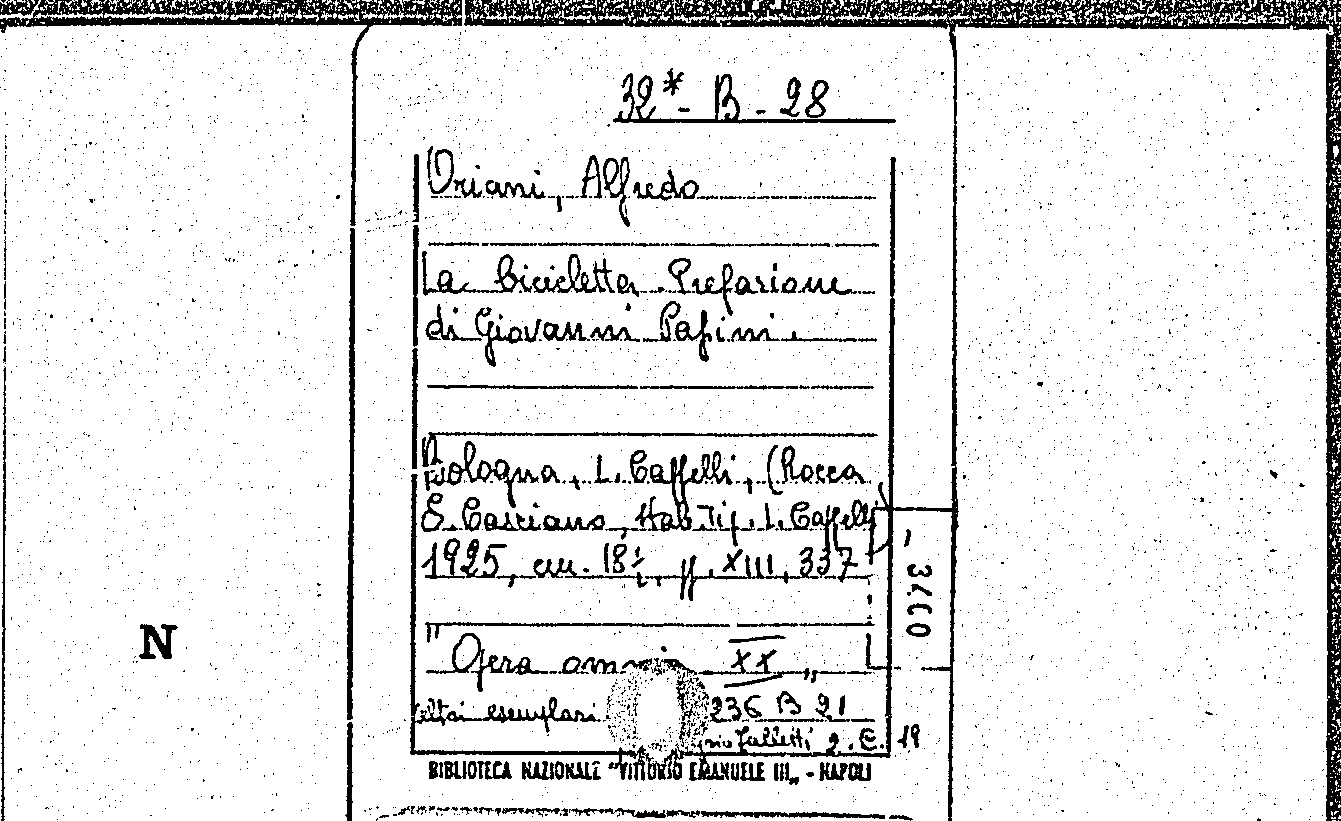 32*- B - 28
Oriani, Alfredo
La bicicletta. Prefazione
di Giovanni Papini.
Bologna, L. Cappelli, (Rocca
S. Casciano, Stab. Tip. L. Cappelli)
1925, cm. 18½, pp. XIII, 337
N
"Opera omnia XX"
altri esemplari 236 B 21
Falletti 2. E. 19
BIBLIOTECA NAZIONALE "VITTORIO EMANUELE III„ - NAPOLI